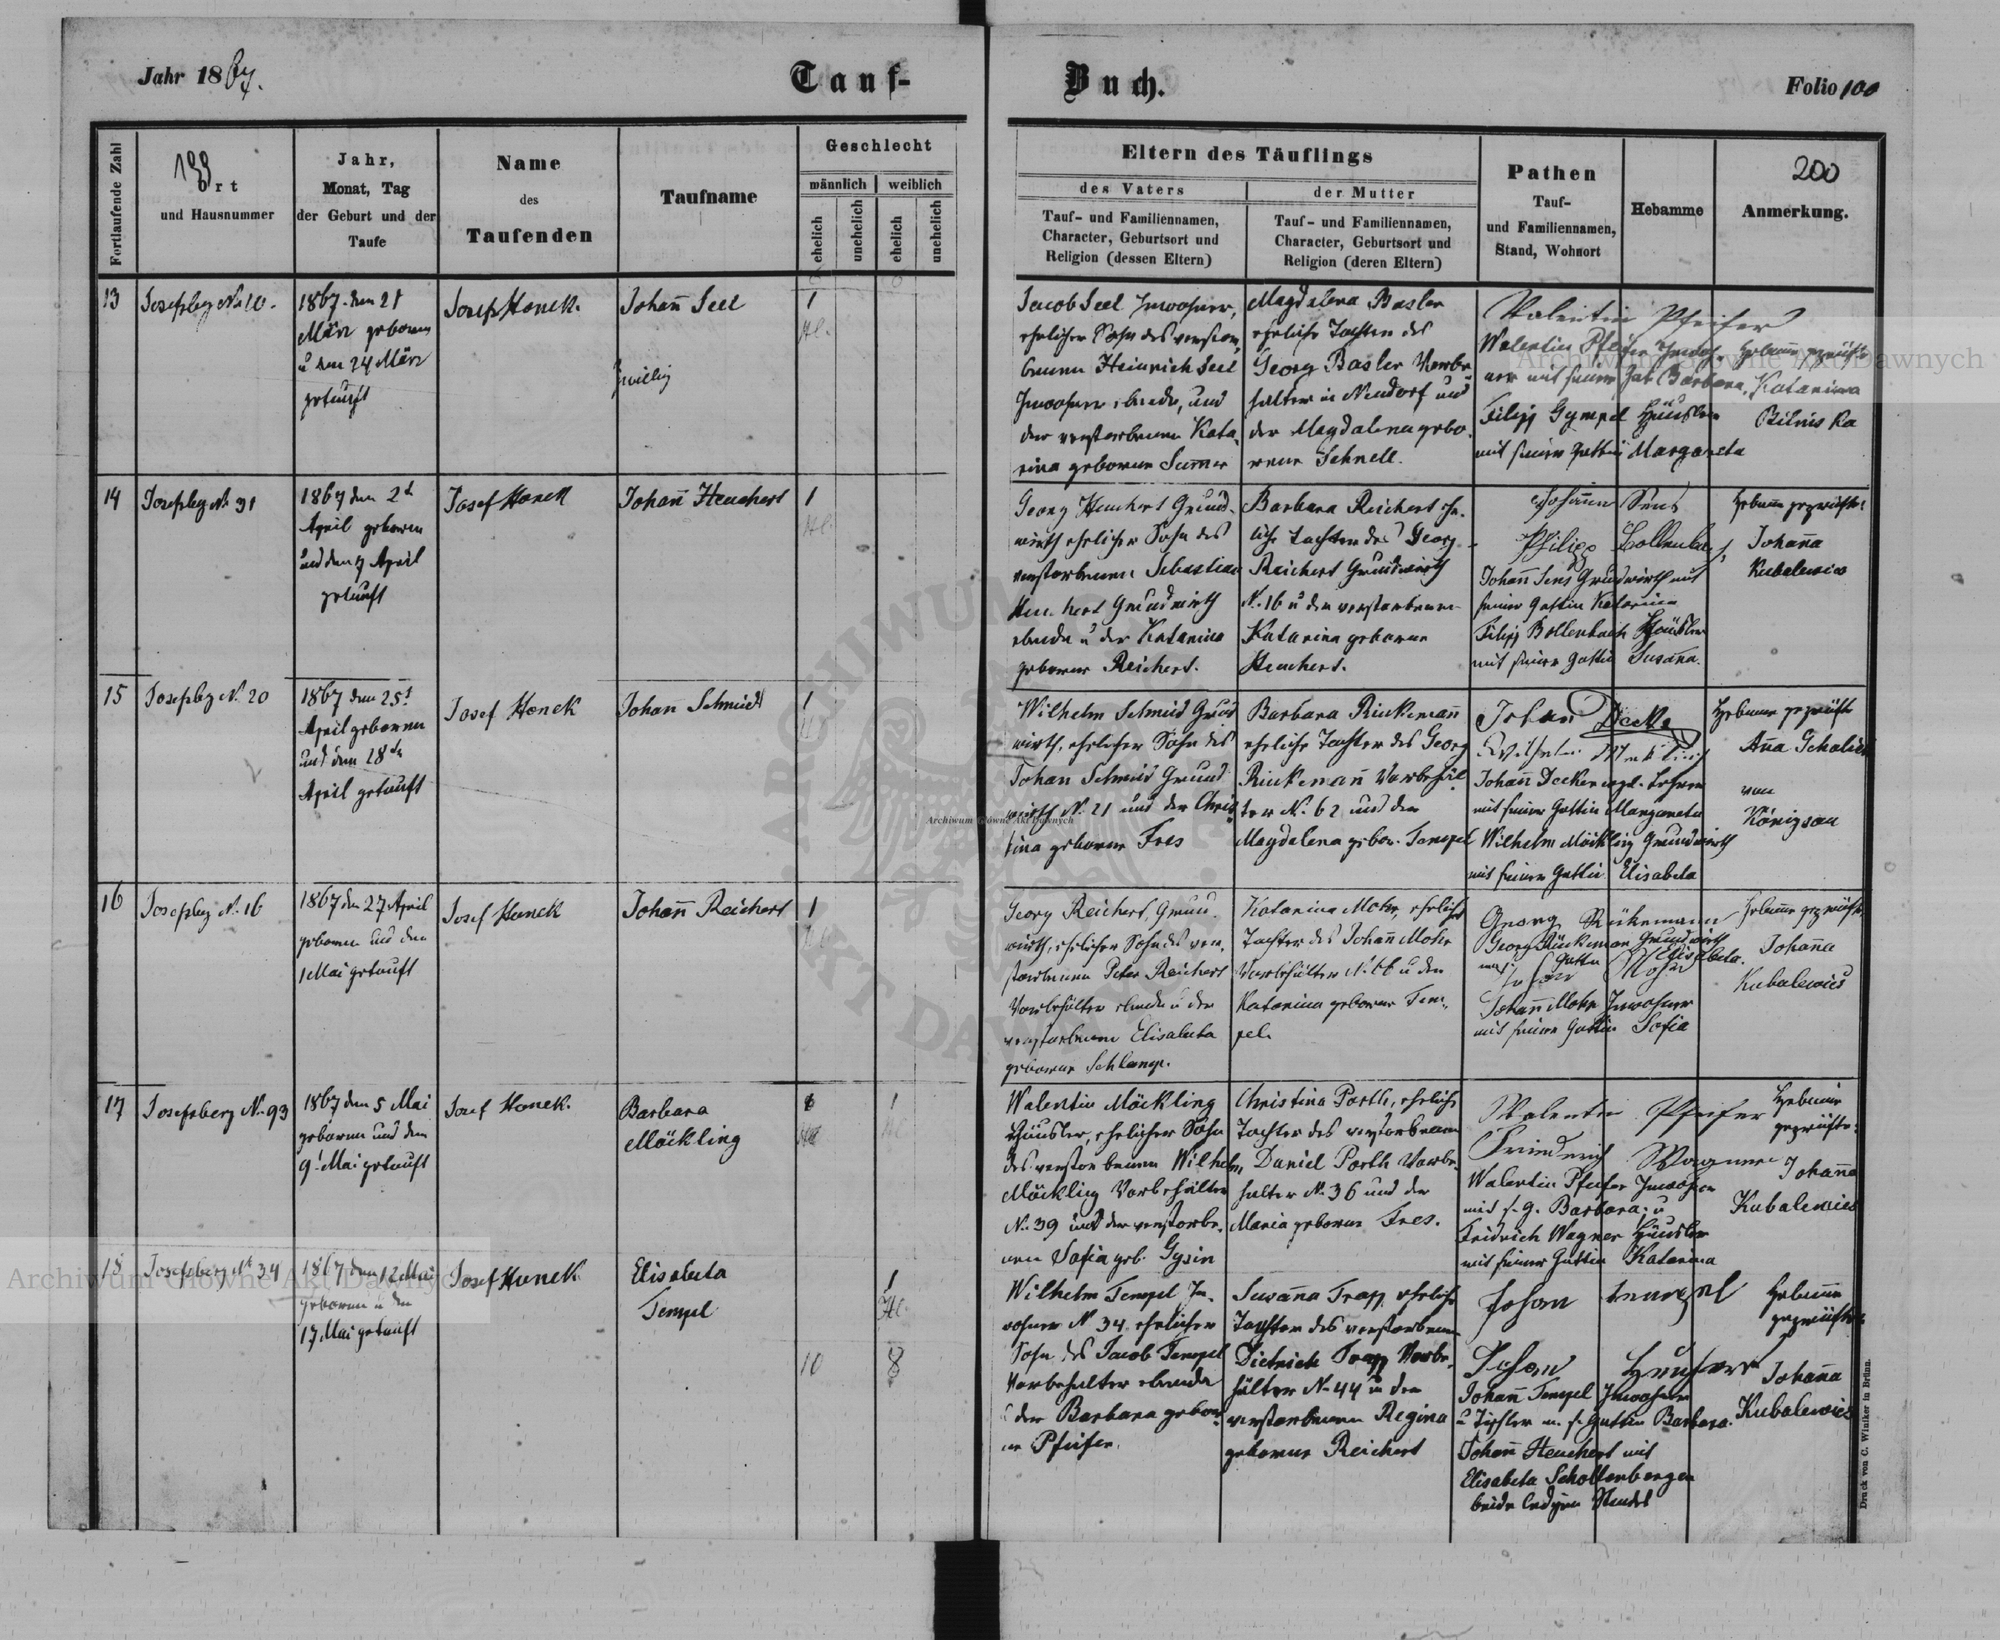 Jahr 1867.
Tauf-
Buch.
Folio 100
Fortlaufende Zahl
199
Ort
und Hausnummer
Jahr,
Monat, Tag
der Geburt und der
Taufe
Name
des
Taufenden
Taufname
Geschlecht
männlich
weiblich
ehelich
unehelich
ehelich
unehelich
Eltern des Täuflings
des Vaters
Tauf- und Familiennamen,
Character, Geburtsort und
Religion (dessen Eltern)
der Mutter
Tauf- und Familiennamen,
Character, Geburtsort und
Religion (deren Eltern)
Pathen
Tauf-
und Familiennamen,
Stand, Wohnort
Hebamme
200
Anmerkung.
13
Josefsbg No. 10.
1867 den 21
März geboren
u den 24 März
getauft
Josef Honek.
Johañ Seel
Zwillig
1
Jacob Seel Inwohner,
ehelicher Sohn des verstor,
benen Heinrich Seel
Inwohner ebenda, und
der verstorbenen Kata,
rina geborene Summer
Magdalena Basler
eheliche Tochter des
Georg Basler Vorbe
halter in Neudorf und
der Magdalena gebo.
rene Schnell.
Valentin Pfeifer
Walentin Pfeifer Inwoh.
ner mit seiner Gat. Barbara.
Filipp Gympel Häusler
mit seiner Gattin Margareta
Hebame geprüfte
Katarina
14
Josefsbg No. 31
1867 den 2t
April geboren
und den 7 April
getauft
Josef Honek
Johañ Heuchert
1
Georg Heuchert Grund-
wirth ehelicher Sohn des
verstorbenen Sebastian
Heuchert Grundwirth
ebenda u der Katarina
geborene Reichert.
Barbara Reichert ehe.
liche Tochter des Georg
Reichert Grundwirth
N. 16 u der verstorbenen
Katarina geborene
Heuchert.
Johann Sens
Philipp Bollenbach,
Johañ Sens Grundwirth mit
seiner Gattin Katarina
Filipp Bollenbach Häusler
mit seiner Gattin Susana.
Hebame geprüfte:
Johaña
Kubalewics
15
Josefsbg N. 20
1867 den 25t
April geboren
und den 28ten
April getauft
Josef Honek
Johan Schmidt
1
Wilhelm Schmid Grund
wirth, ehelicher Sohn des
Johan Schmid Grund
wirth N. 21 und der Chris
tina geborene Fres
Barbara Rückemañ
eheliche Tochter des Georg
Rückemañ Vorbehäl.
ter N. 62, und der
Magdalena gebor. Tempel
Johan Decker
Johañ Decker evgl. Lehrer
mit seiner Gattin Margareta
Wilhelm Möckling Grundwirth
mit seiner Gattin Elisabeta
Hebame geprüfte
Aña
von
Königsau
16
Josefsbg N. 16
1867 den 27 April
geboren und den
1 Mai getauft
Josef Honek
Johañ Reichert
1
Georg Reichert, Grund.
wirth, ehelicher Sohn des ver.
storbenen Peter Reichert
Vorbehälter ebenda u der
verstorbenen Elisabeta
geborene Schlamp.
Katarina Mohr, eheliche
Tochter des Johañ Mohr
Vorbehälter N. 66 u der
Katarina geborene Tem-
pel.
Georg Rükemann
Georg Rückeman Grundwirth
mit s. Gattin Elisabeta.
Johan Mohr
Johañ Mohr Inwohner
mit seiner Gattin Sofia
Hebame geprüfte
Johaña
Kubalewics
17
Josefsberg N. 93
1867 den 5 Mai
geboren und den
9t Mai getauft
Josef Honek.
Barbara
Möckling
1
Walentin Möckling
Häusler, ehelicher Sohn
des verstorbenen Wilhelm
Möckling Vorbehälter
N. 39 und der verstorbe.
nen Sofia geb. Gysin
Christina Porth, eheliche
Tochter des verstorbenen
Daniel Porth Vorbe.
halter N. 36 und der
Maria geborene Fres.
Valentin Pfeifer
Friederich Wagner
Walentin Pfeifer Inwohner
mit s. G. Barbara; u
Fridrich Wagner Häusler
mit seiner Gattin Katarina
Hebame
geprüfte:
Johaña
Kubalewics
18
Josefsberg No. 34
1867 den 12 Mai
geboren u den
17 Mai getauft
Josef Honek
Elisabeta
Tempel
1
10
8
Wilhelm Tempel In.
wohner N 34, ehelicher
Sohn des Jacob Tempel
Vorbehalter ebenda
u der Barbara gebor.
ne Pfeifer.
Susaña Trapp, eheliche
Tochter des verstorbenen
Dietrich Trapp Vorbe.
hälter N. 44 u der
verstorbenen Regina
geborene Reichert
Johan tempel
Johan Heuchert
Johañ Tempel Inwohner
u Tischler m. s. Gattin Barbara.
Johañ Heuchert mit
Elisabeta Schottenberger
beide ledigen Standes
Hebame
geprüfte:
Johaña
Kubalewics
Druck von C. Winiker in Brünn.
Archiwum Główne Akt Dawnych
Archiwum Główne Akt Dawnych
Archiwum Główne Akt Dawnych
ARCHIWUM
AKT DAWNYCH